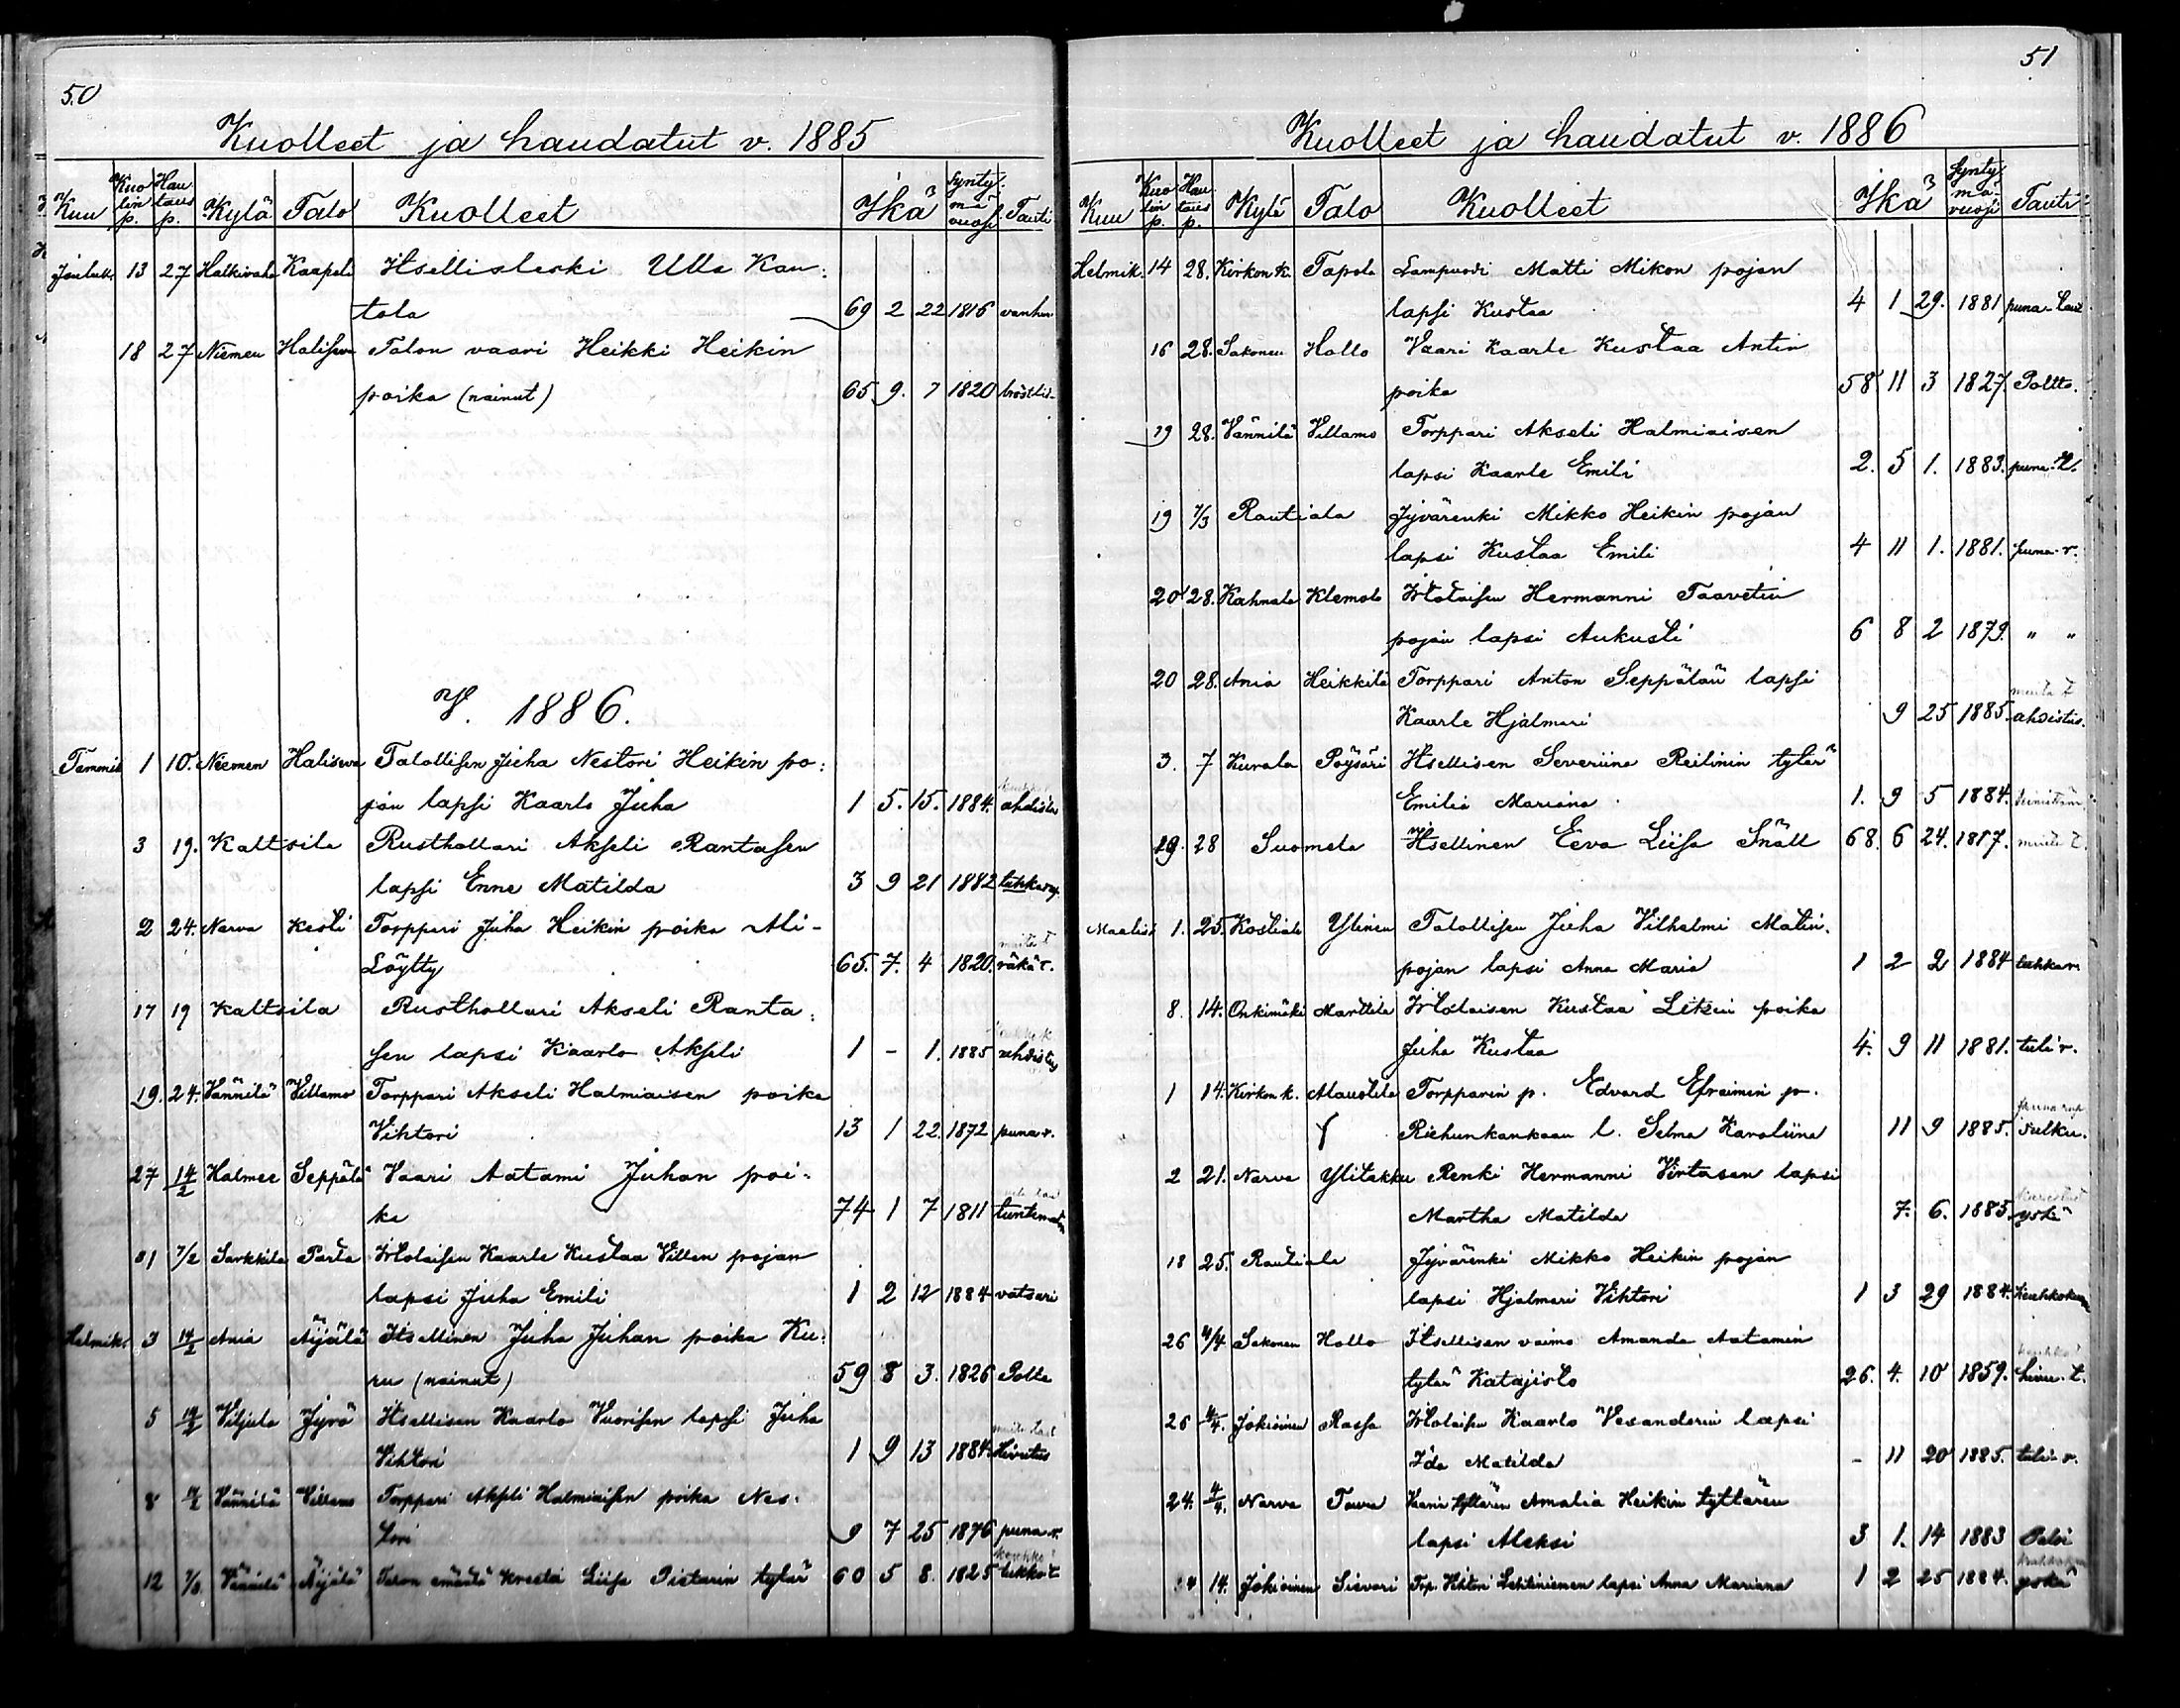 50
Kuolleet ja haudatut v. 1885
Kuu Kuolin p. Hautaus p. Kylä Talo Kuolleet Ikä Syntymä vuosi Tauti
Jouluk. 13 27 Halkivaha Kaapeli Itsellisleski Ulla Kan-
tola 69 2 22 1816 vanhu
18 27 Niemen Haliseva Talon vaari Heikki Heikin
poika (nainut) 65 9. 7 1820
V. 1886.
Tammik 1 10. Niemen Haliseva Talollisen Juha Nestori Heikin po-
jan lapsi Kaarlo Juha 1 5. 15. 1884. ahdistus
3 19. Kaltsila Rusthollari Akseli Rantasen
lapsi Enne Matilda 3 9 21 1882 tuhkarp.
2 24. Narva Kesti Torppari Juha Heikin poika Ali-
Löytty 65. 7. 4 1820. räkä t.
17 19 Kaltsila Rusthollari Akseli Ranta-
sen lapsi Kaarlo Akseli 1 - 1. 1885 ahdistus
19. 24. Vännilä Villamo Torppari Akseli Halmiaisen poika
Vihtori 13 1 22. 1872 puna r.
27 14/2 Halmee Seppälä Vaari Aatami Juhan poi-
ka 74 1 7 1811 tuntematon
31 7/2 Sarkkila Parta Irtolaisen Kaarle Kustaa Villen pojan
lapsi Juha Emili 1 2 12 1884 vatsari
Helmik. 3 14/2 Ania Äijälä Itsellinen Juha Juhan poika Ku-
ru (nainut) 59 8 3. 1826 Polte
5 14/2 Viljula Jyrä Itsellisen Kaarlo Vuorisen lapsi Juha
Vihtori 1 9 13 1884
8 14/2 Vännilä Villamo Torppari Akseli Halmiaisen poika Nes-
tori 9 7 25 1876 puna r.
12 7/3 Vännilä Äijälä Talon emäntä Kreeta Liisa Pietarin tytär 60 5 8. 1825
51
Kuolleet ja haudatut v. 1886
Kuu Kuolin p. Hautaus p. Kylä Talo Kuolleet Ikä Syntymä vuosi Tauti
Helmik. 14 28. Kirkon k. Tapola Lampuodi Matti Mikon pojan
lapsi Kustaa 4 1 29. 1881 puna-taut
16 28. Sakonen Hollo Vaari Kaarle Kustaa Antin
poika 58 11 3 1827. Poltto.
19 28. Vännilä Villamo Torppari Akseli Halmiaisen
lapsi Kaarle Emili 2. 5 1. 1883. puna-t.
19 7/3 Rautiala Jyvärenki Mikko Heikin pojan
lapsi Kustaa Emili 4 11 1. 1881. puna-r.
20 28. Kahmala Klemola Irtolaisen Hermanni Taavetin
pojan lapsi Aukusti 6 8 2 1879. " "
20 28. Ania Heikkilä Torppari Anton Seppälän lapsi
Kaarle Hjalmari 9 25 1885. ahdistus.
3. 7 Kurala Pöysäri Itsellisen Severiina Reilinin tytär
Emilia Mariana 1. 9 5 1884.
29. 28 Suomela Itsellinen Eeva Liisa Snäll 68. 6 24. 1817. muita t.
Maalisk 1. 25. Kostiala Ylinen Talollisen Juha Vilhelmi Matin
pojan lapsi Anna Maria 1 2 2 1884 tuhkar.
8. 14. Onkimäki Marttila Irtolaisen Kustaa Letzin poika
Juha Kustaa 4. 9 11 1881. tuli r.
1 14. Kirkon k. Alaustela Torpparin p. Edvard Efraimin p.
Riehunkankaan l. Selma Karoliina 11 9 1885.
2 21. Narva Ylitakku Renki Hermanni Virtasen lapsi
Martha Matilda 7. 6. 1885. yskä
18 25. Rautiala Jyvärenki Mikko Heikin pojan
lapsi Hjalmari Vihtori 1 3 29 1884.
26 4/4 Sakonen Hollo Itsellisen vaimo Amanda Aatamin
tytär Katajisto 26. 4. 10 1859.
26 4/4. Jokioinen Rassa Irtolaisen Kaarlo Vesanderin lapsi
Ida Matilda - 11 20 1885. tuli-r.
24. 4/4. Narva Vaarin tyttären Amalia Heikin tyttären
lapsi Aleksi 3 1. 14 1883
14. Jokioinen Sisvari Torp. Vihtori Lehtiniemen lapsi Anna Mariana 1 2 25 1884. yskä